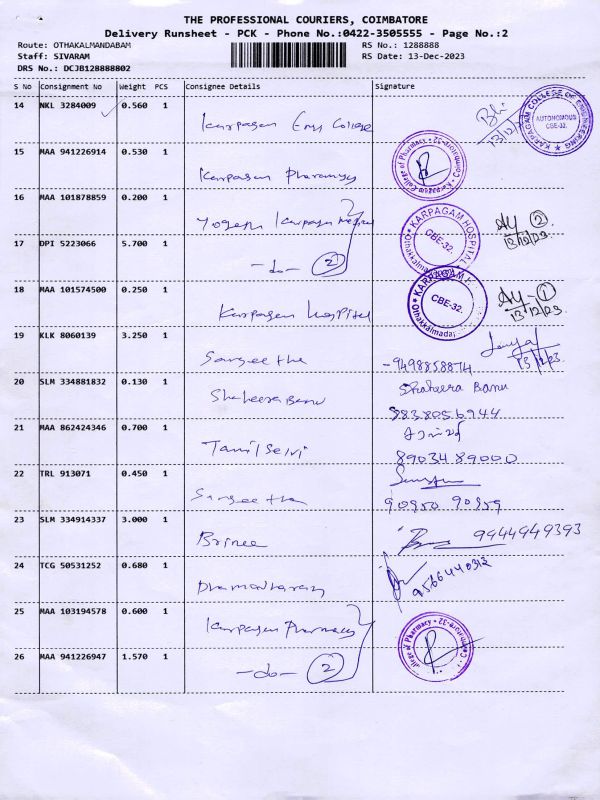 THE PROFESSIONAL COURIERS, COIMBATORE
Delivery Runsheet - PCK - Phone No.:0422-3505555 - Page No.:2
Route: OTHAKALMANDABAM RS No.: 1288888
Staff: SIVARAM RS Date: 13-Dec-2023
DRS No.: DCJB128888802
S No Consignment No Weight PCS Consignee Details Signature
14 NKL 3284009 0.560 1 Karpagam Eng College 13/12 KARPAGAM COLLEGE OF ENGINEERING AUTONOMOUS CBE-32.
15 MAA 941226914 0.530 1 Karpagam Pharmacy Karpagam College of Pharmacy • Coimbatore-32 •
16 MAA 101878859 0.200 1 Yogesh Karpagam KARPAGAM HOSPITAL Othakkalmandapam CBE-32. 2 13/12/23
17 DPI 5223066 5.700 1 -do- 2
18 MAA 101574500 0.250 1 Karpagam Hospital KARPAGAM CBE-32. 1 13/12/23
19 KLK 8060139 3.250 1 Sangeetha -9498858874 13/12/23
20 SLM 334881832 0.130 1 Shaheera Banu Shaheera Banu
9838056944
21 MAA 862424346 0.700 1 Tamil Selvi 8903489000
22 TRL 913071 0.450 1 Sangeetha 90950 90959
23 SLM 334914337 3.000 1 9944949393
24 TCG 50531252 0.680 1 Dhamodharan 9566440312
25 MAA 103194578 0.600 1 Karpagam Pharmacy College of Pharmacy • Coimbatore-32
26 MAA 941226947 1.570 1 -do- 2